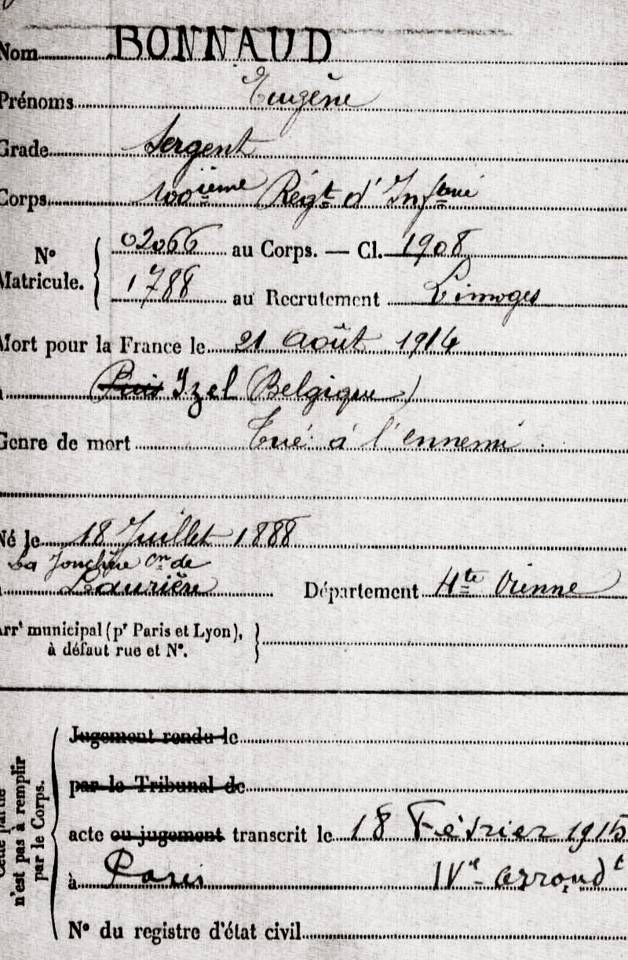 Nom BONNAUD
Prénoms Eugène
Grade Sergent
Corps 100ième Régt d'Infterie
N° Matricule. { 02066 au Corps. — Cl. 1908
1788 au Recrutement Limoges
Mort pour la France le 21 Août 1914
Izel (Belgique)
Genre de mort Tué à l'ennemi
Né le 18 Juillet 1888
La Jonchère Cn de
Laurière Département Hte Vienne
Arrt municipal (pr Paris et Lyon), }
à défaut rue et N°.
Cette partie n'est pas à remplir par le Corps.
Jugement rendu le
par le Tribunal de
acte ou jugement transcrit le 18 Février 1915
à Paris IVe arrondt
N° du registre d'état civil